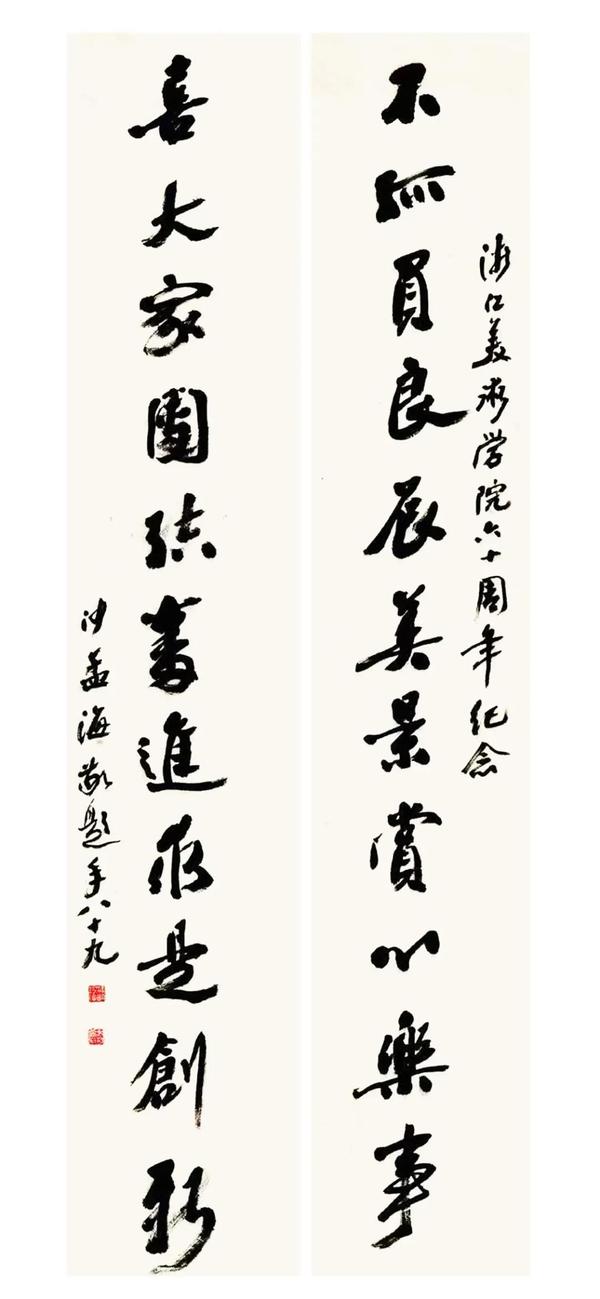 浙江美術学院六十周年纪念
不孤負良辰美景賞心樂事
喜大家團结奮進求是創新
沙孟海敬题年八十九